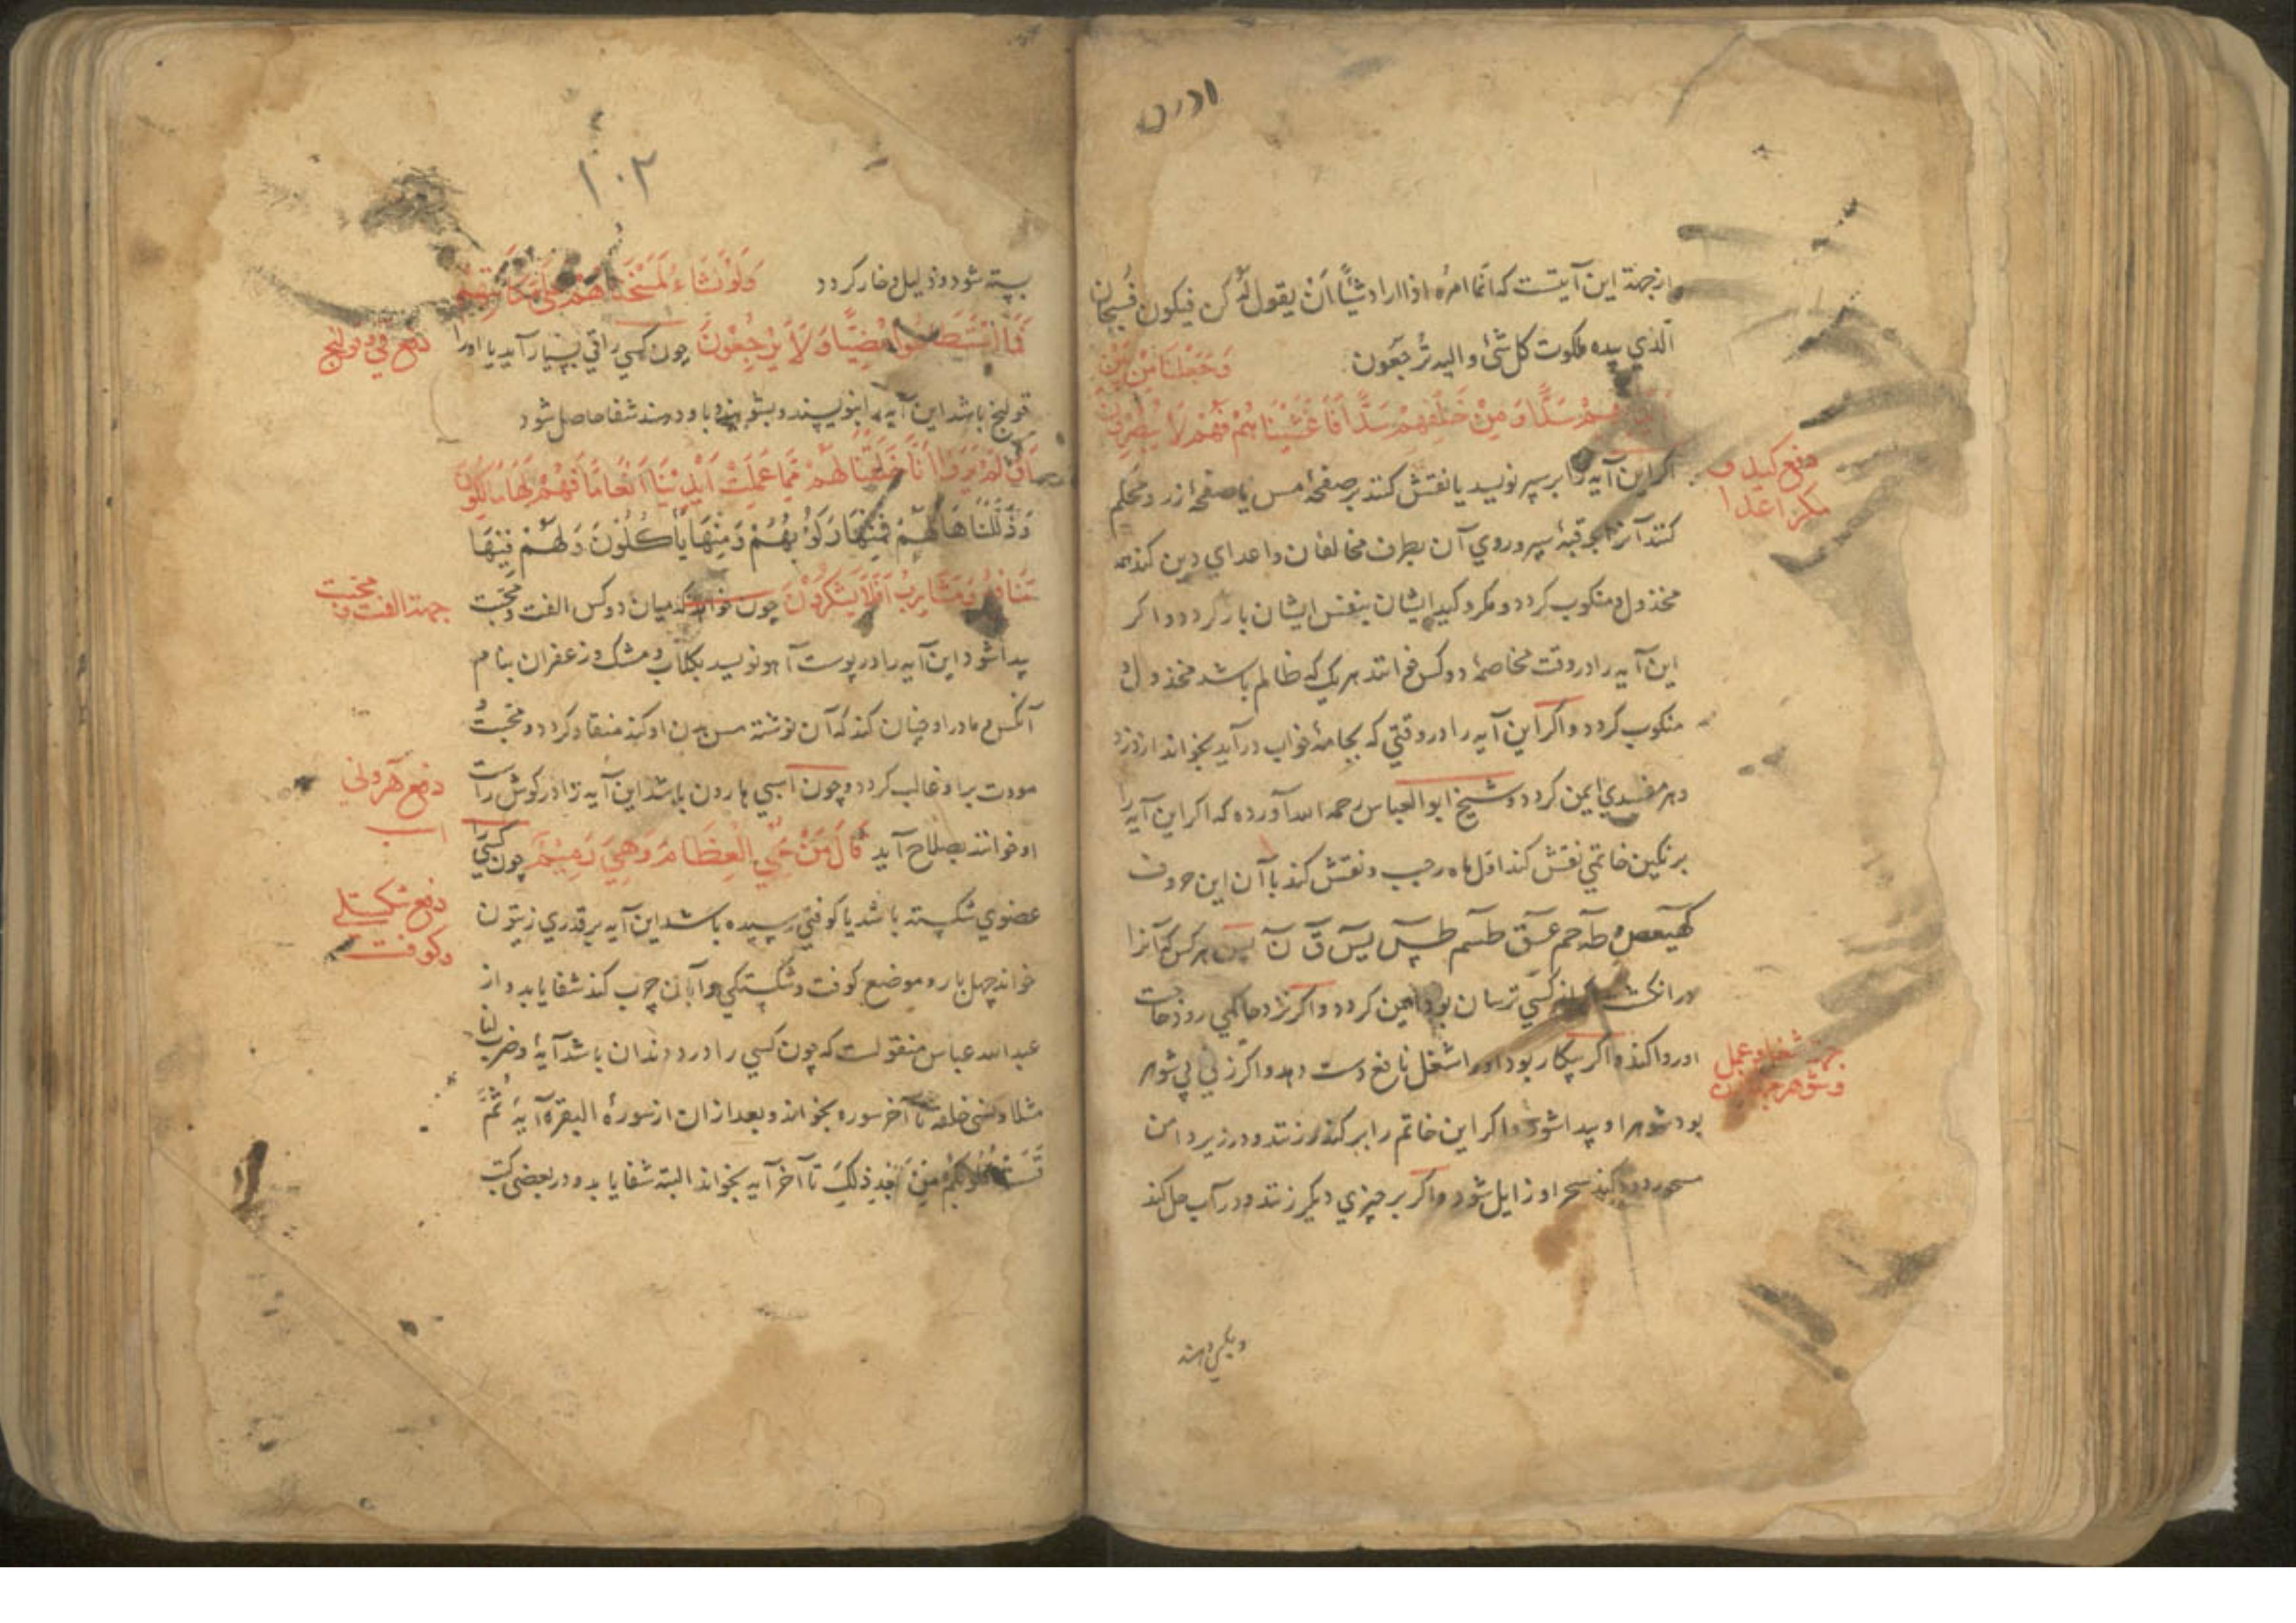 از جهة این آیتست که انما امره اذا اراد شیًٔا اَنْ یقول له کن فیکون فسبحان
الذي بیده ملکوت کل شئ و الیه تُرجَعون وَجَعَلْنَا مِنْ بَیْنِ
هِمْ سَدًّا وَ مِنْ خَلْفِهِمْ سَدًّا فَاَغْشَیْنَاهُمْ فَهُمْ لَا یُبْصِرُونَ
دفع کید و
مکر اعدا
اکر این آیه را بر سپر نویسد یا نقش کند بر صفحهٔ مس یا صفحهٔ زر و محکم
کند آنرا بر قبهٔ سپر و روي آن بطرف مخالفان و اعداي دین کند همه
مخذول و منکوب کردد و مکر و کید ایشان بنفس ایشان باز کردد و اکر
این آیه را در وقت مخاصمهٔ دو کس خوانند هر یک که ظالم باشد مخذول و
منکوب کردد و اکر این آیه را در وقتي که بجامهٔ خواب در آید بخواند از دزد
و هر مفسدي ایمن کردد و شیخ ابو العباس رحمه الله آورده که اکر این آیه را
بر نکین خاتمي نقش کند اول ماه رجب و نقش کند با آن این حروف
کهیعص طه حم عسق طسم طس یس ق ن هر کس که آنرا
در انکشت کند از کسي ترسان بود ایمن کردد و اکر نزد حاکمي رود حاجت
او روا کند و اکر بیکار بود او را شغل نافع دست دهد و اکر زني بي شوهر
جهة شغل و عمل
و شوهر
بود شوهر او پیدا شود و اکر این خاتم را بر کندر زنند و در زیر دامن
مسحور دود کند سحر او زایل شود و اکر بر چیزي دیکر زنند و در آب حل کند
۱۰۲
بسته شود و ذلیل و خار کردد وَلَوْ نَشَاءُ لَمَسَخْنَاهُمْ عَلَی مَکَانَتِهِمْ
فَمَا اسْتَطَاعُوا مُضِیًّا وَ لَا یَرْجِعُونَ چون کسي را قي بسیار آید یا او را
دفع قي و قولنج
قولنج باشد این آیه را بنویسند و بشویند و باو دهند شفا حاصل شود
اَوَ لَمْ یَرَوْا اَنَّا خَلَقْنَا لَهُمْ مِمَّا عَمِلَتْ اَیْدِیْنَا اَنْعَامًا فَهُمْ لَهَا مَالِکُونَ
وَذَلَّلْنَاهَا لَهُمْ فَمِنْهَا رَکُوْبُهُمْ وَمِنْهَا یَاْکُلُوْنَ وَلَهُمْ فِیْهَا
مَنَافِعُ وَمَشَارِبُ اَفَلَا یَشْکُرُوْنَ چون خواهد که میان دو کس الفت و محبت
جهة الفت و محبت
پیدا شود این آیه را در پوست آهو نویسد بکلاب و مشک و زعفران بنام
آنکس و مادر او چنان کند که آن نوشته مس بدن او کند منقاد کردد و محبت
مودت بر او غالب کردد و چون اسبي هارون باشد این آیه را در کوش راست
دفع هروني
اسب
او خوانند بصلاح آید قَالَ مَنْ یُحْيِ الْعِظَامَ وَهِيَ رَمِیْمٌ چون کسي را
عضوي شکسته باشد یا کوفتي رسیده باشد این آیه بر قدري زیتون
دفع شکستکي
و کوفت
خواند چهل بار و موضع کوفت و شکستکي را با آن چرب کند شفا یابد و از
عبدالله عباس منقولست که چون کسي را درد دندان باشد آیهٔ و ضرب لنا
مثلا و نسي خلقه تا آخر سوره بخواند و بعد از ان از سورهٔ البقره آیهٔ ثُمَّ
قَسَتْ قُلُوبُکُمْ مِنْ بَعْدِ ذٰلِکَ تا آخر آیه بخواند البته شفا یابد و در بعضي کتب